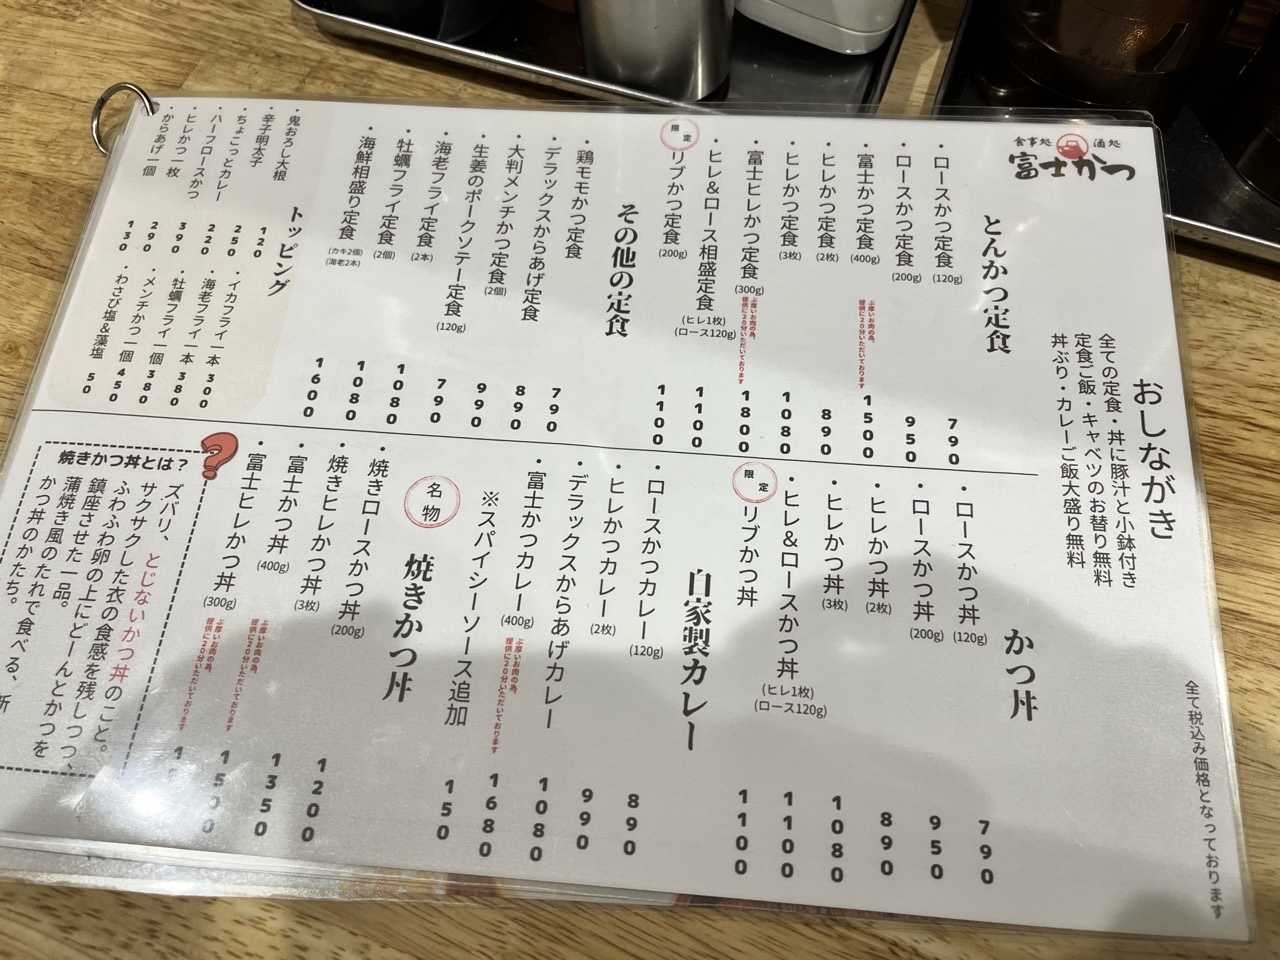 食事処 酒処
富士かつ
おしながき
全ての定食・丼に豚汁と小鉢付き
定食ご飯・キャベツのお替り無料
丼ぶり・カレーご飯大盛り無料
全て税込み価格となっております
とんかつ定食
・ロースかつ定食(120g) 790
・ロースかつ定食(200g) 950
・富士かつ定食(400g) ぶ厚いお肉の為、提供に20分いただいております 1500
・ヒレかつ定食(2枚) 890
・ヒレかつ定食(3枚) 1080
・富士ヒレかつ定食(300g) ぶ厚いお肉の為、提供に20分いただいております 1800
・ヒレ&ロース相盛定食(ヒレ1枚)(ロース120g) 1100
限定 リブかつ定食(200g) 1100
その他の定食
・鶏モモかつ定食 790
・デラックスからあげ定食 890
・大判メンチかつ定食(2個) 990
・生姜のポークソテー定食(120g) 790
・海老フライ定食(2本) 1080
・牡蠣フライ定食(2個) 1080
・海鮮相盛り定食(カキ2個)(海老2本) 1600
トッピング
・鬼おろし大根 120
・辛子明太子 250
・ちょこっとカレー 220
・ハーフロースかつ 390
・ヒレかつ一枚 290
・からあげ一個 130
・イカフライ一本 300
・海老フライ一本 380
・牡蠣フライ一個 380
・メンチかつ一個 450
・わさび塩&藻塩 50
かつ丼
・ロースかつ丼(120g) 790
・ロースかつ丼(200g) 950
・ヒレかつ丼(2枚) 890
・ヒレかつ丼(3枚) 1080
・ヒレ&ロースかつ丼(ヒレ1枚)(ロース120g) 1100
限定 リブかつ丼 1100
自家製カレー
・ロースかつカレー(120g) 890
・ヒレかつカレー(2枚) 990
・デラックスからあげカレー 1080
・富士かつカレー(400g) ぶ厚いお肉の為、提供に20分いただいております 1680
※スパイシーソース追加 150
名物
焼きかつ丼
・焼きロースかつ丼(200g) 1200
・焼きヒレかつ丼(3枚) 1350
・富士かつ丼(400g) ぶ厚いお肉の為、提供に20分いただいております 1500
・富士ヒレかつ丼(300g) ぶ厚いお肉の為、提供に20分いただいております
?
焼きかつ丼とは?
ズバリ、とじないかつ丼のこと。
サクサクした衣の食感を残しつつ、
ふわふわ卵の上にどーんとかつを
鎮座させた一品。
蒲焼き風のたれで食べる、新
かつ丼のかたち。